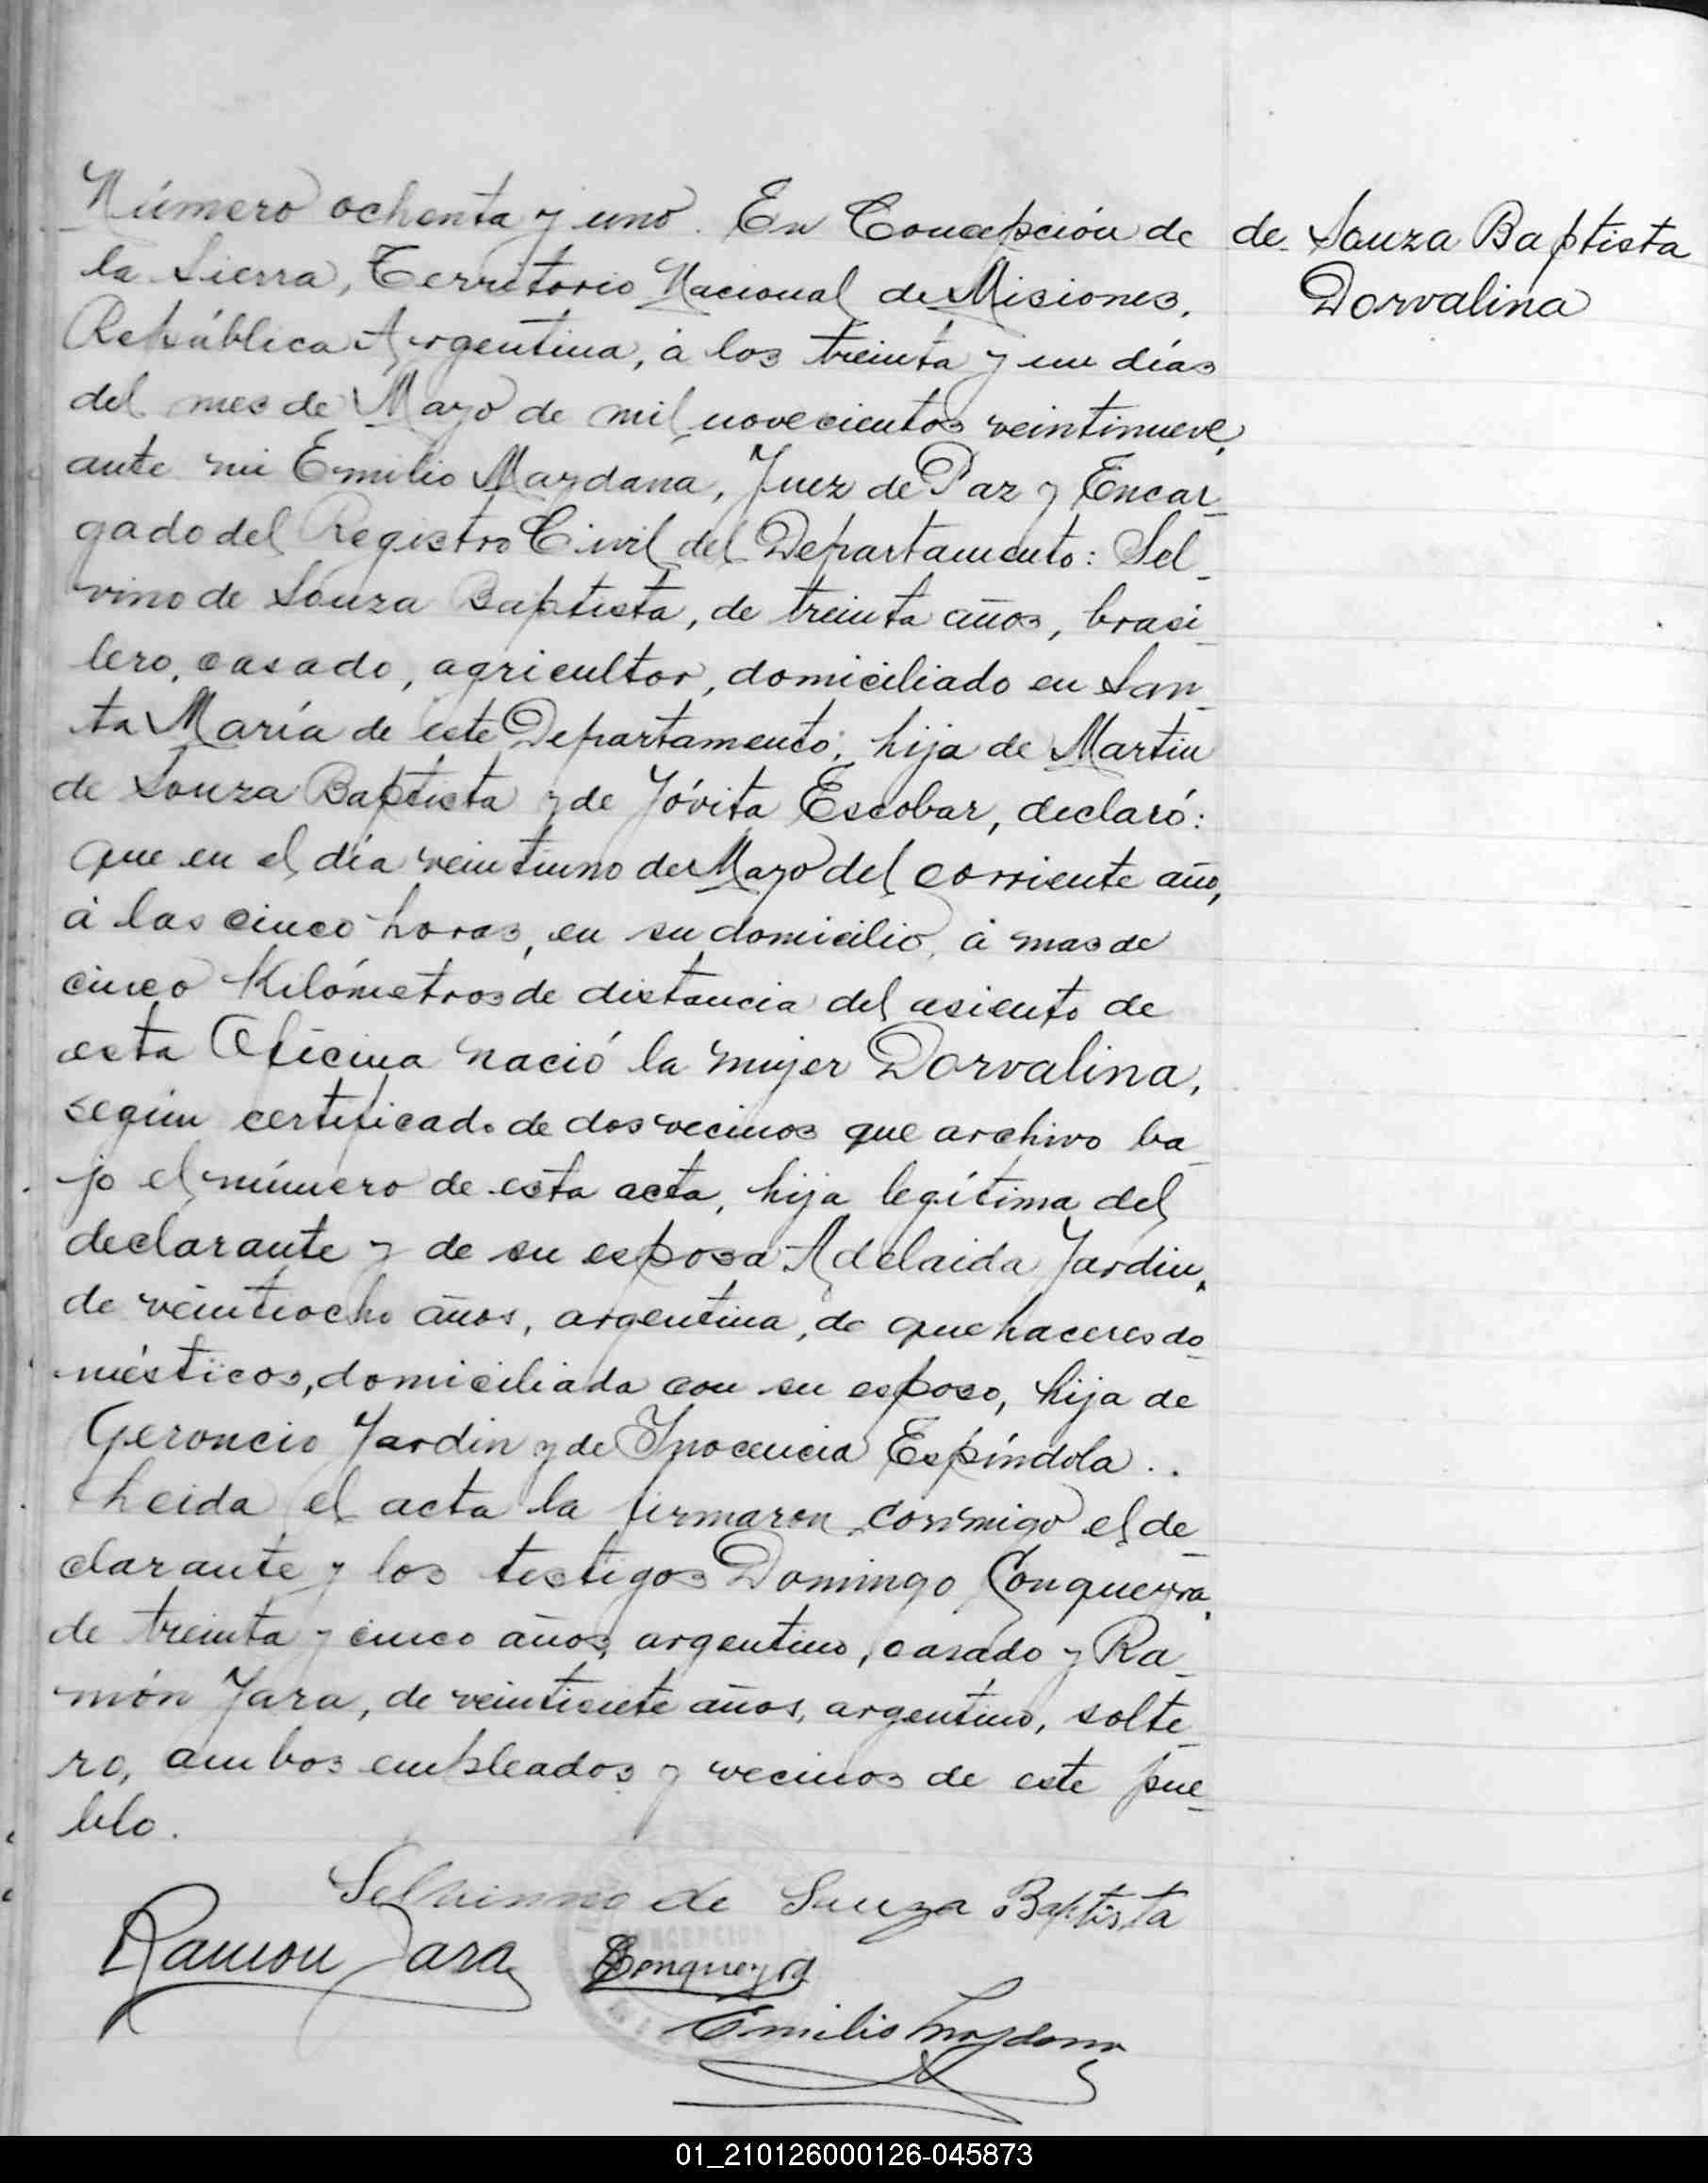 Número ochenta y uno. En Concepción de
la Sierra, Territorio Nacional de Misiones,
República Argentina, á los treinta y un días
del mes de Mayo de mil novecientos veintinueve,
ante mi Emilio Maydana, Juez de Paz y Encar-
gado del Registro Civil del Departamento: Sel-
vino de Souza Baptista, de treinta años, brasi-
lero, casado, agricultor, domiciliado en San-
ta María de este Departamento; hija de Martin
de Souza Baptista y de Jóvita Escobar, declaró:
Que en el día veintiuno de Mayo del corriente año,
á las cinco horas, en su domicilio, á mas de
cinco Kilómetros de distancia del asiento de
esta Oficina nació la mujer Dorvalina,
según certificado de dos vecinos que archivo ba-
jo el número de esta acta, hija legítima del
declarante y de su esposa Adelaida Jardin,
de veintiocho años, argentina, de quehaceres do-
mésticos, domiciliada con su esposo, hija de
Geroncio Jardin y de Inocencia Espíndola..
Leida el acta la firmaron conmigo el de-
clarante y los testigos Domingo Conqueyra,
de treinta y cinco años, argentino, casado y Ra-
món Jara, de veintisiete años, argentino, solte-
ro, ambos empleados y vecinos de este pue-
blo.
de Souza Baptista
Dorvalina
Selvinno de Souza Baptista
Ramon Jara
Conqueyra
Emilio Maydana
CONCEPCION
01_210126000126-045873